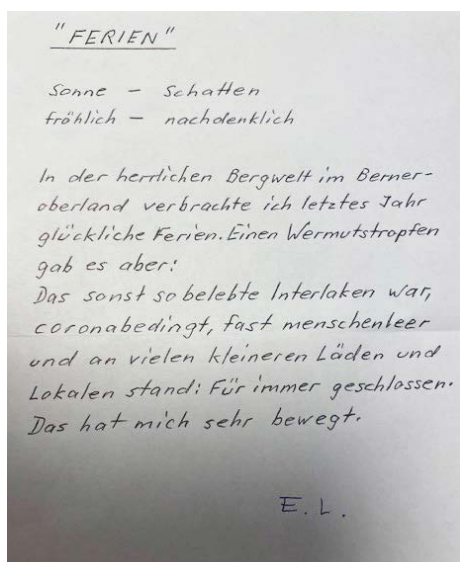 "FERIEN"
Sonne – Schatten
fröhlich – nachdenklich
In der herrlichen Bergwelt im Berner-
oberland verbrachte ich letztes Jahr
glückliche Ferien. Einen Wermutstropfen
gab es aber:
Das sonst so belebte Interlaken war,
coronabedingt, fast menschenleer
und an vielen kleineren Läden und
Lokalen stand: Für immer geschlossen.
Das hat mich sehr bewegt.
E. L.